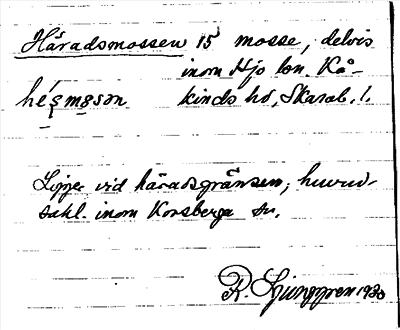 Häradsmossen 15 mosse, delvis
inom Hjo lfn. Kå-
kinds hd, Skarab. l.
Ligger vid häradsgränsen, huvud-
sakl. inom Korsberga sn.
R. Ljunggren 1930